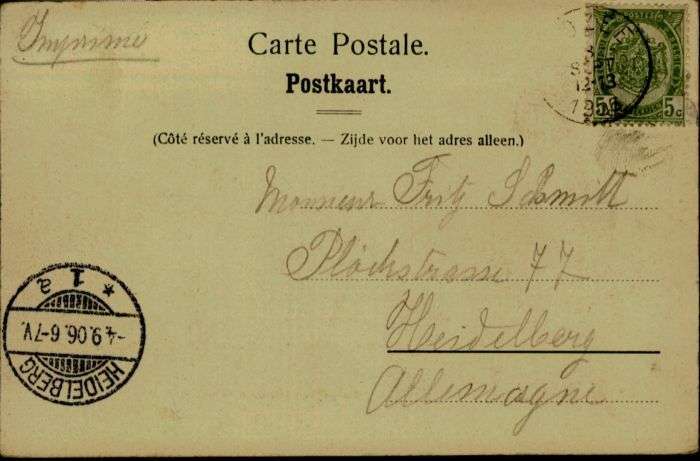 Imprimé
Carte Postale.
Postkaart.
(Côté réservé à l'adresse. — Zijde voor het adres alleen.)
5 5c
Monsieur Fritz Schmitt
Plöckstrasse 77
Heidelberg
Allemagne
HEIDELBERG
-4.9.06.6-7V.
* 1 a